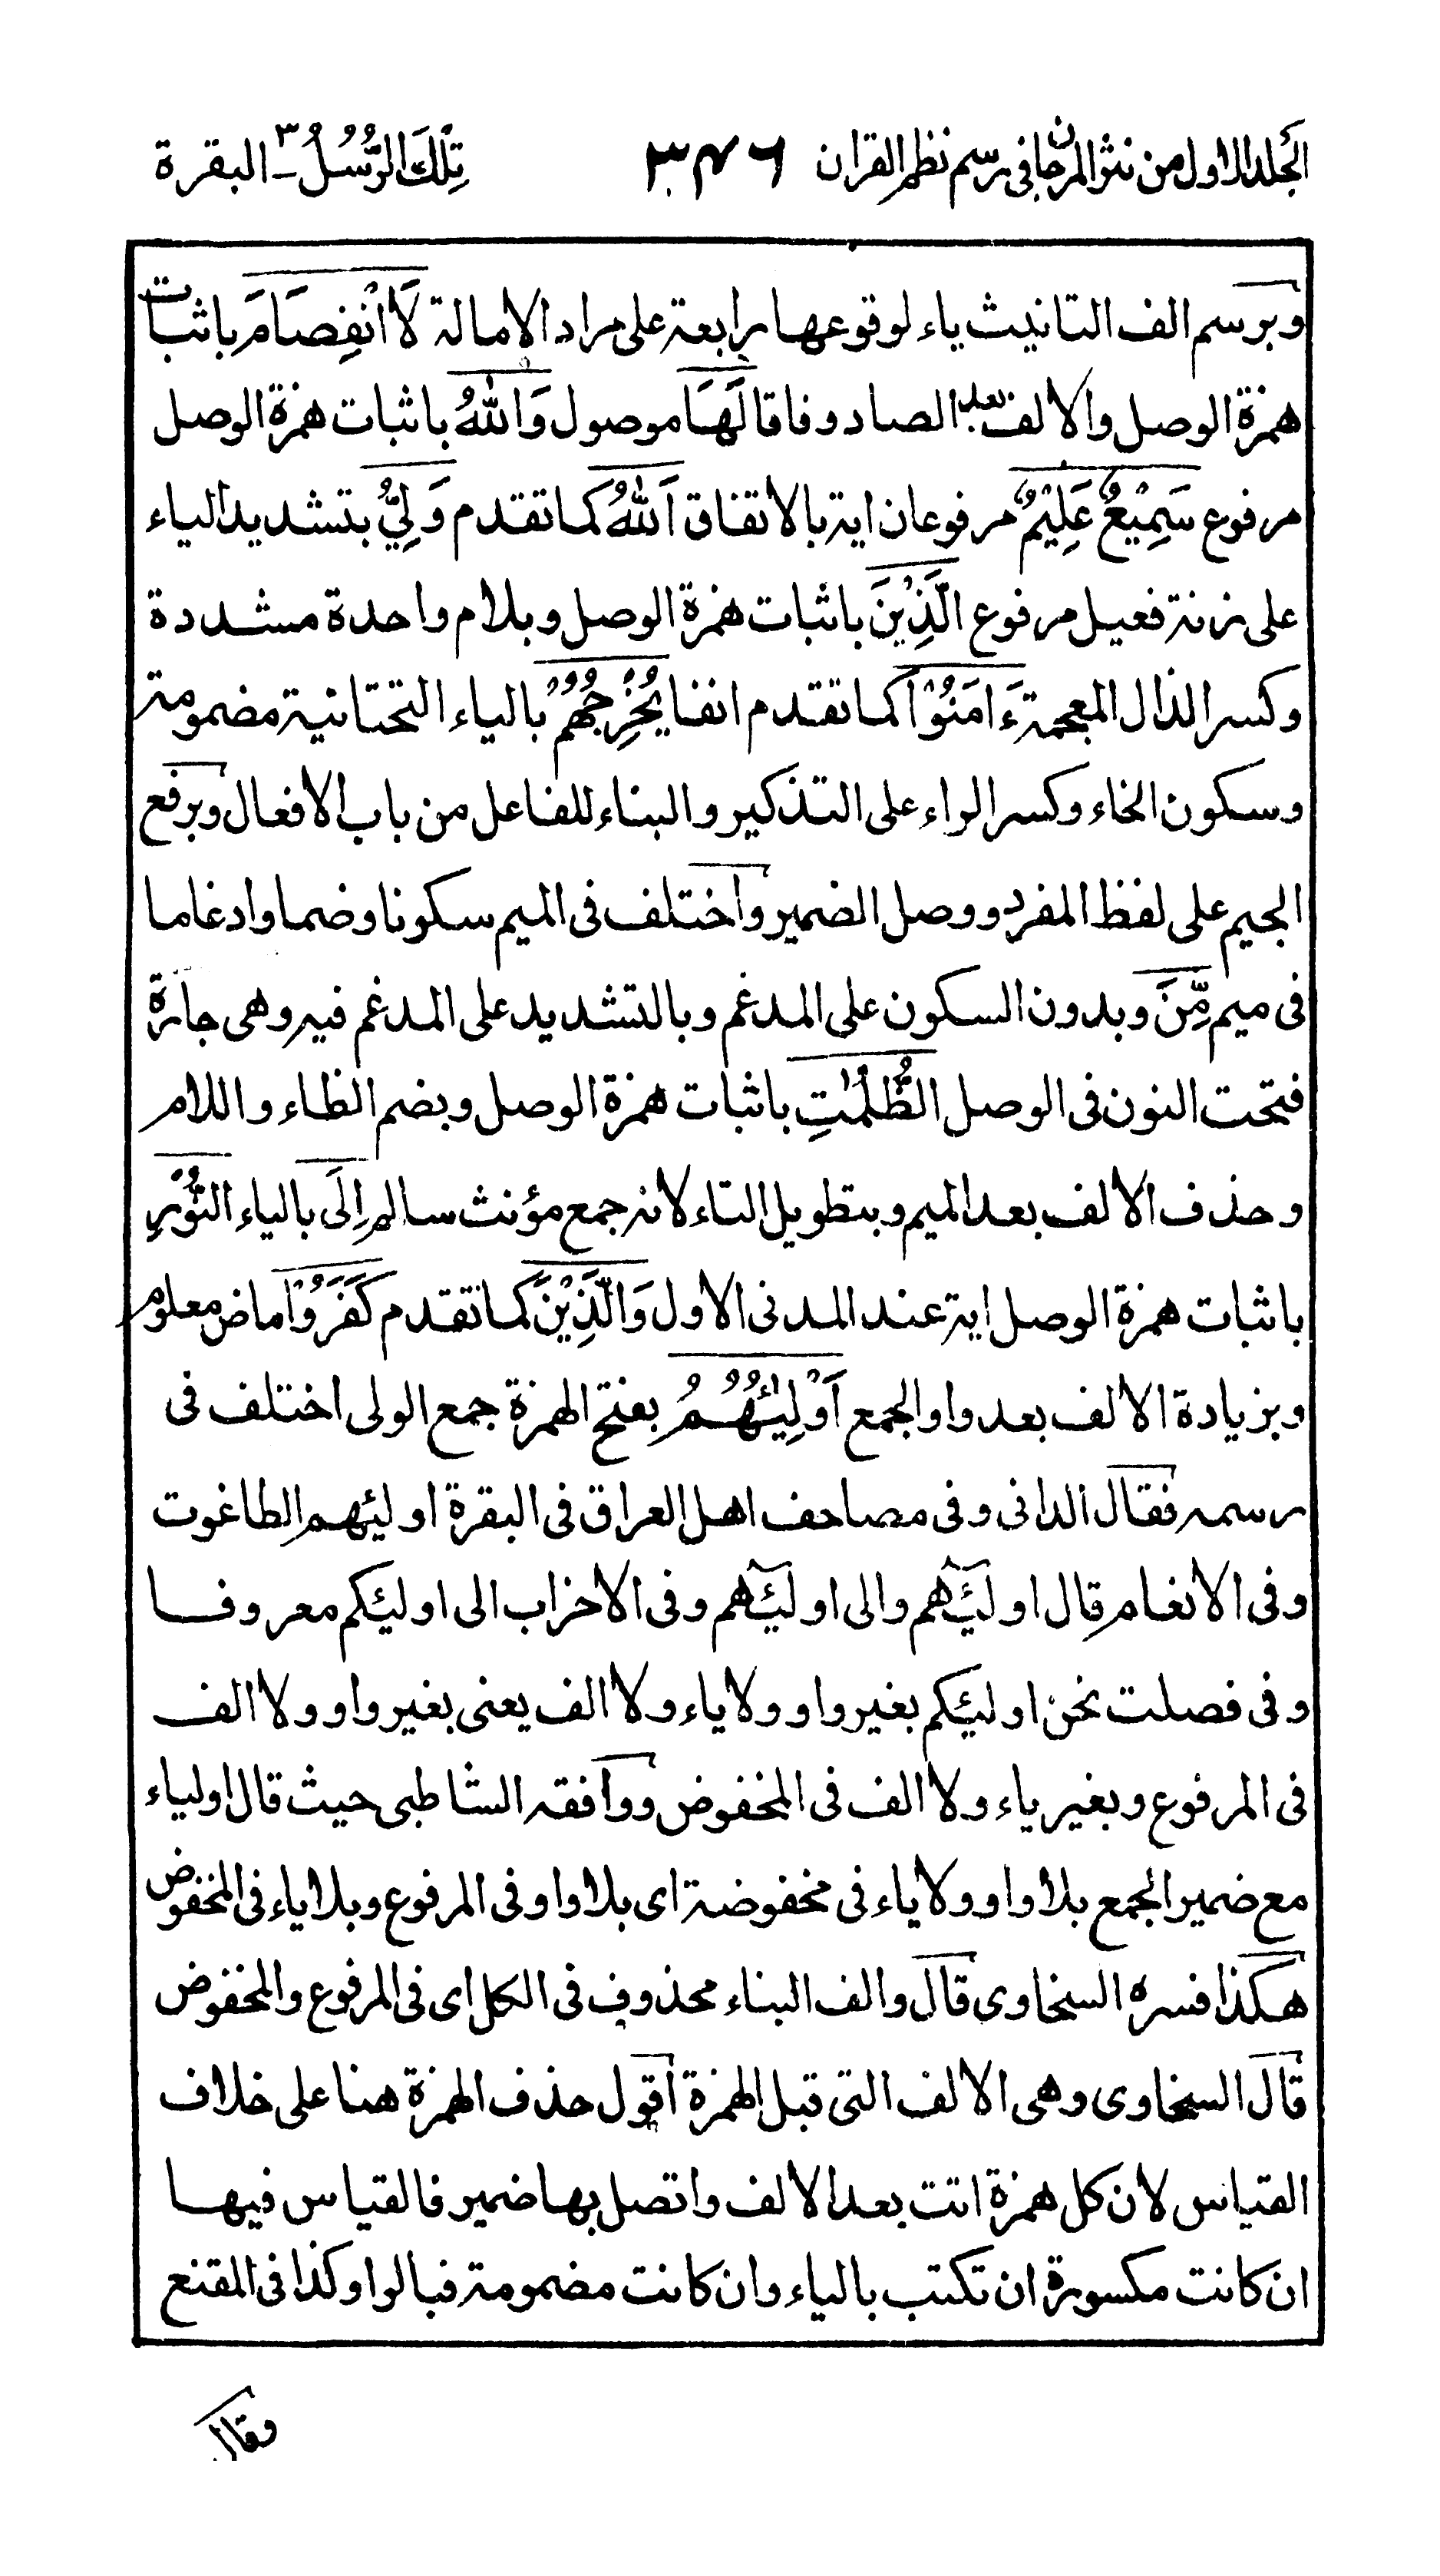 الجلد الاول من نثر المرجان فی رسم نظم القران ٣٤٦ تِلْكَ الرُّسُلُ ٣ – البقرة
وبرسم الف التانيث ياء لوقوعها رابعة على مراد الامالة لَا انْفِصَامَ باثبات
همزة الوصل والالف بعد الصاد وفاقا لَهَا موصول وَاللّٰهُ باثبات همزة الوصل
مرفوع سَمِيْعٌ عَلِيْمٌ مرفوعان اية بالاتفاق اَللّٰهُ كما تقدم وَلِيُّ بتشديد الياء
على زنة فعيل مرفوع الَّذِيْنَ باثبات همزة الوصل وبلام واحدة مشددة
وكسر الذال المعجمة ءَامَنُوْا كما تقدم انفا يُخْرِجُهُمْ بالياء التحتانية مضمومة
وسكون الخاء وكسر الراء على التذكير والبناء للفاعل من باب الافعال وبرفع
الجيم على لفظ المفرد ووصل الضمير واختلف فى الميم سكونا وضما وادغاما
فى ميم مِّنَ وبدون السكون على المدغم وبالتشديد على المدغم فيه وهى جارة
فتحت النون فى الوصل الظُّلُمٰتِ باثبات همزة الوصل وبضم الظاء واللام
وحذف الالف بعد الميم وبتطويل التاء لانه جمع مؤنث سالم اِلَى بالياء النُّوْرِ
باثبات همزة الوصل اية عند المدنى الاول وَالَّذِيْنَ كما تقدم كَفَرُوْا ماض معلوم
وبزيادة الالف بعد واو الجمع اَوْلِيٰـُٔهُمُ بفتح الهمزة جمع الولى اختلف فى
رسمه فقال الدانى وفى مصاحف اهل العراق فى البقرة اوليٰئهم الطاغوت
وفى الانعام قال اوليٰٓئهم والى اوليٰٓئهم وفى الاحزاب الى اوليئكم معروفا
وفى فصلت نحن اوليئكم بغير واو ولا ياء ولا الف يعنى بغير واو ولا الف
فى المرفوع وبغير ياء ولا الف فى المخفوض ووافقه الشاطبى حيث قال اولياء
مع ضمير الجمع بلا واو ولا ياء فى مخفوضة اى بلا واو فى المرفوع وبلا ياء فى المخفوض
هكذا فسره السخاوى قال والف البناء محذوف فى الكل اى فى المرفوع والمخفوض
قال السخاوى وهى الالف التى قبل الهمزة اقول حذف الهمزة هنا على خلاف
القياس لان كل همزة اتت بعد الالف واتصل بها ضمير فالقياس فيها
ان كانت مكسورة ان تكتب بالياء وان كانت مضمومة فبالواو كذا فى المقنع
وقال